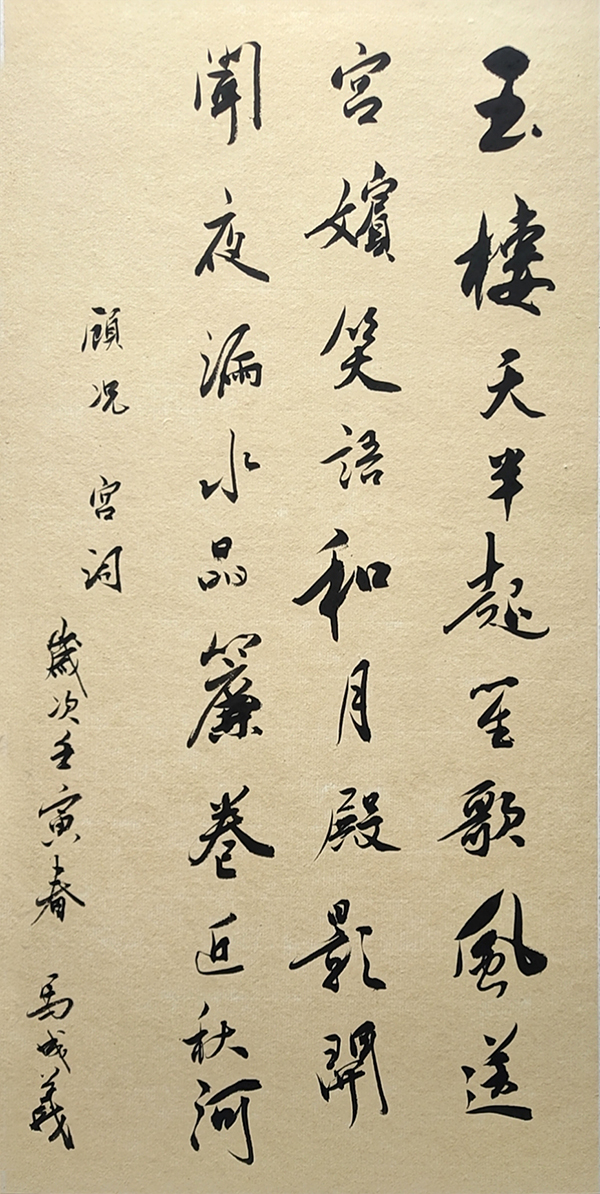 玉樓天半起笙歌風送
宮嬪笑語和月殿影開
聞夜漏水晶簾卷近秋河
顧況 宮詞
歲次壬寅春 馬成義